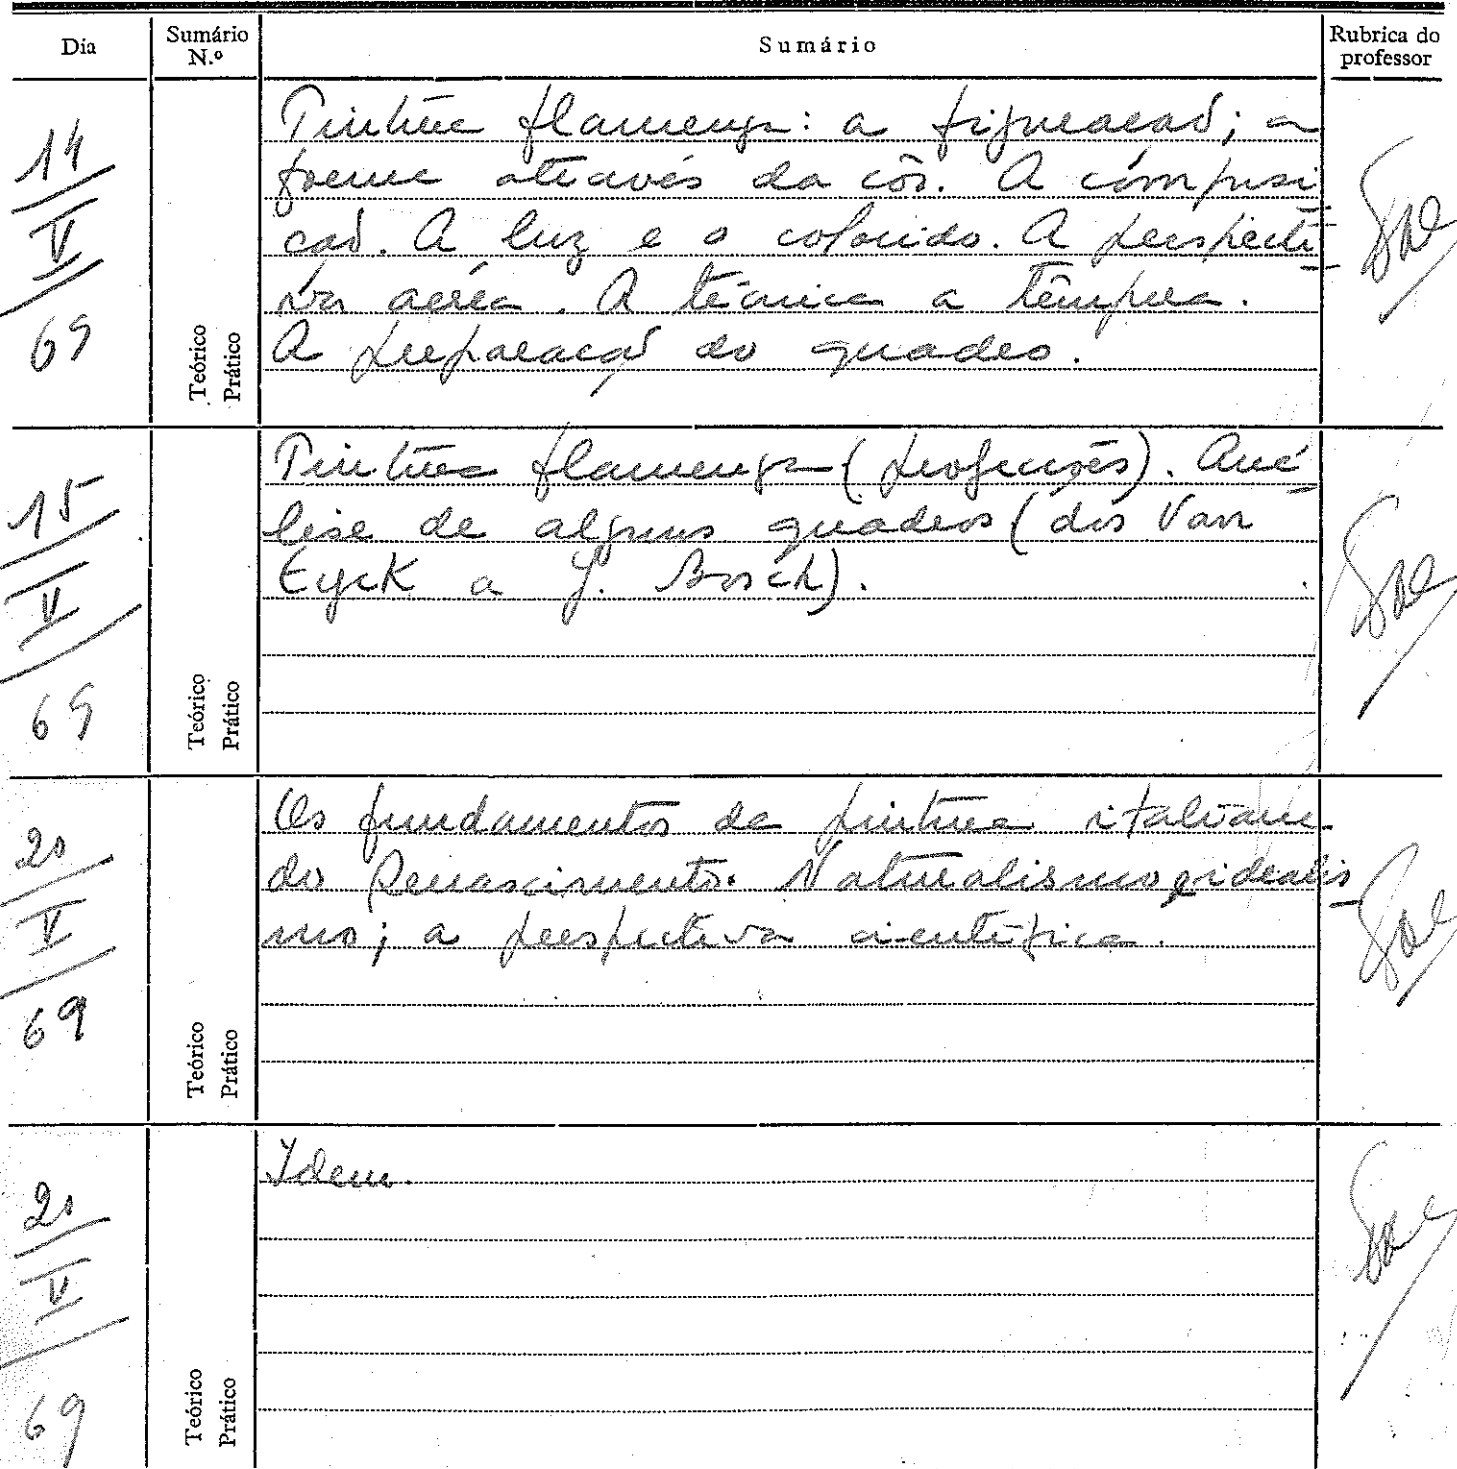 Dia
Sumário N.º
Sumário
Rubrica do professor
14
V
69
Teórico
Prático
Pintura flamenga: a figuração; a
forma através da côr. A composi
ção. A luz e o colorido. A perspecti
va aérea. A técnica a têmpera.
A preparação do quadro.
15
V
69
Teórico
Prático
Pintura flamenga (projecções). Aná
lise de alguns quadros (dos Van
Eyck a J. Bosch).
20
V
69
Teórico
Prático
Os fundamentos da pintura italiana
do Renascimento. Naturalismo e idealis
mo; a perspectiva científica.
20
V
69
Teórico
Prático
Idem.